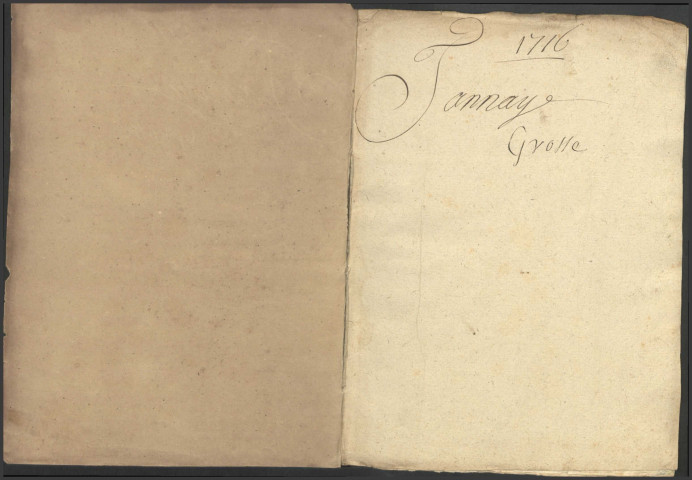 1716
Tannaye
Grosse